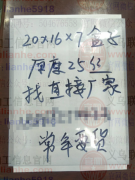 20×16×7盒子
厚度25丝
找直接厂家
常年要货